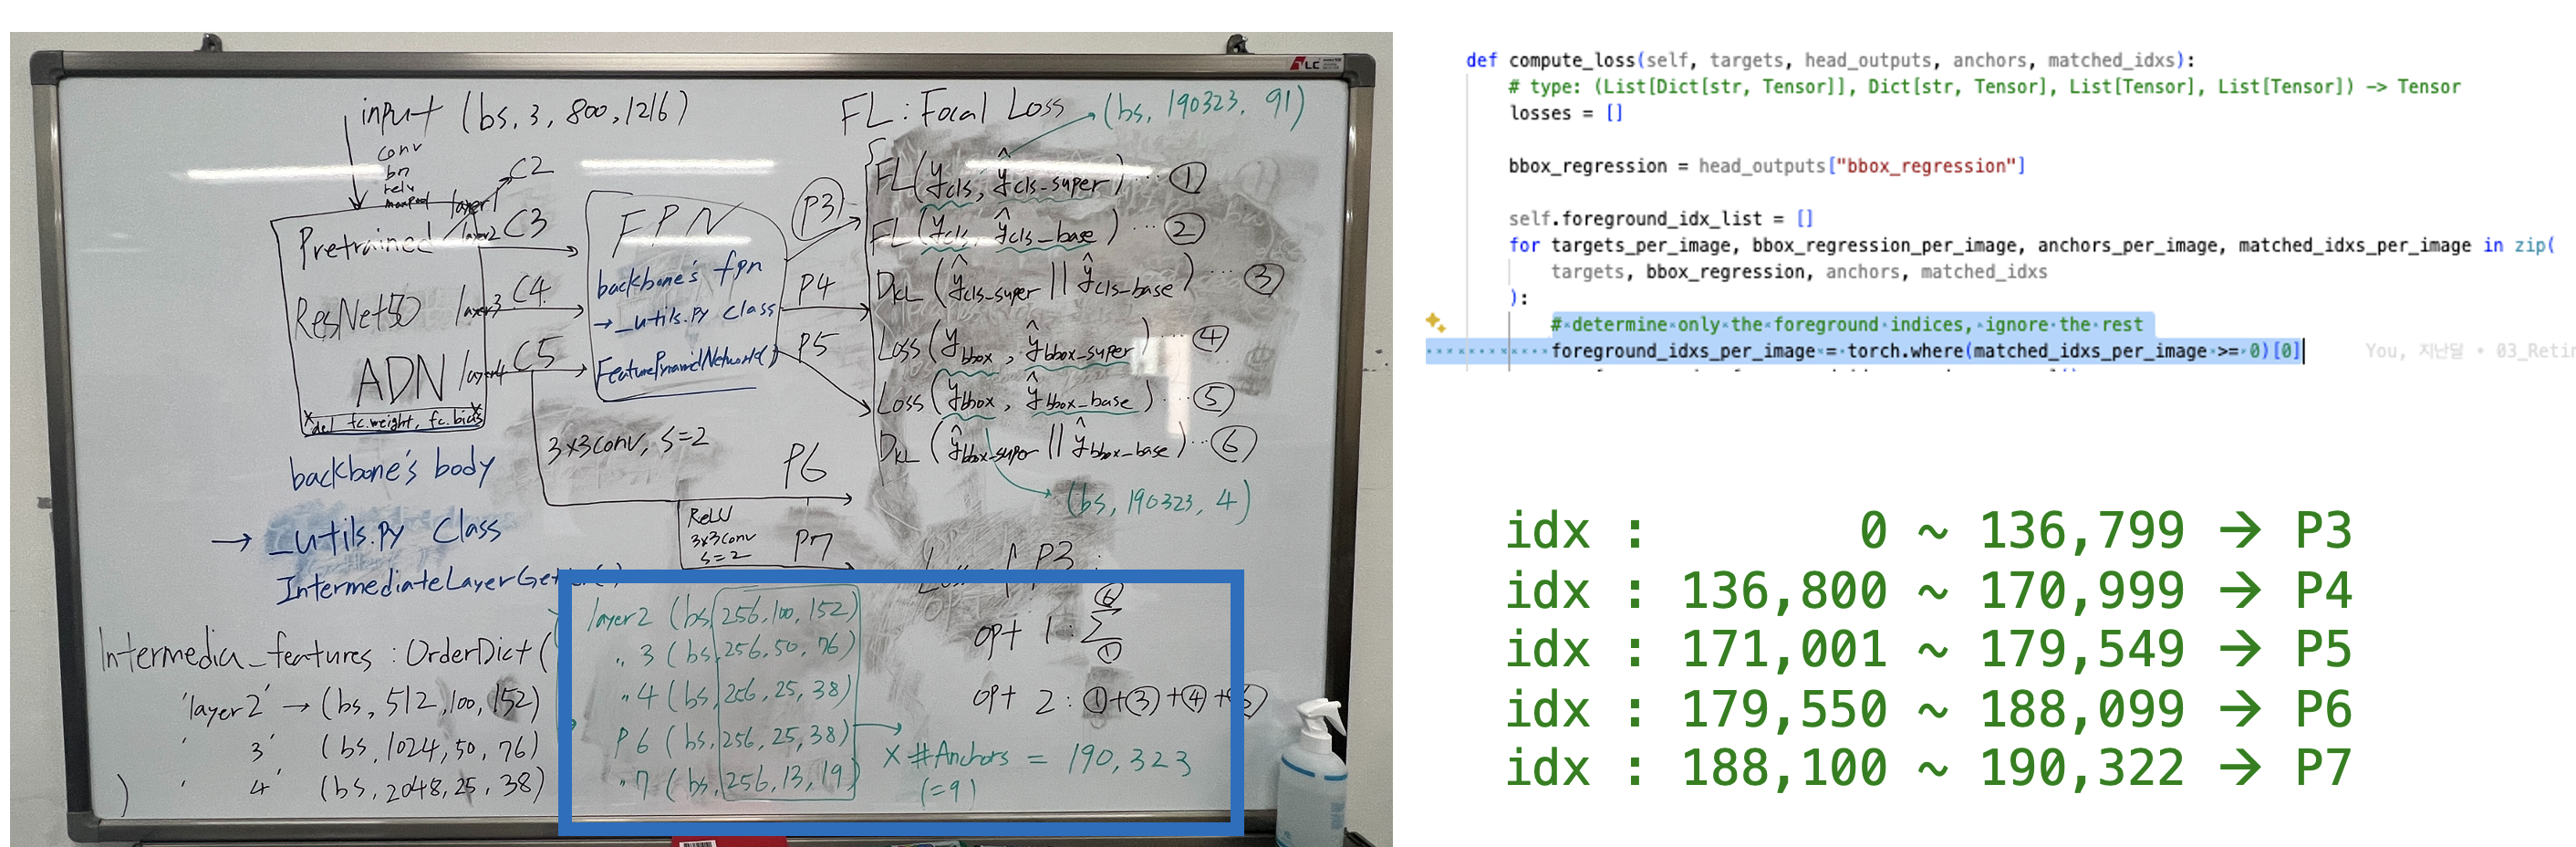 input (bs, 3, 800, 1216)
conv
bn
relu
maxpool
layer1
C2
Pretrained
layer2
C3
ResNet50
layer3
C4
ADN
layer4
C5
del fc.weight, fc.bias
backbone's body
→ _utils.py Class
IntermediateLayerGetter()
FPN
backbone's fpn
→ _utils.py class
FeaturePyramidNetwork()
P3
P4
P5
3x3conv, S=2
P6
ReLU
3x3conv
S=2
P7
FL : Focal Loss
(bs, 190323, 91)
FL(ycls, ŷcls-super) ... ①
FL(ycls, ŷcls_base) ... ②
DKL(ŷcls-super || ŷcls-base) ... ③
Loss(ybbox, ŷbbox-super) ... ④
Loss(ybbox, ŷbbox-base) ... ⑤
DKL(ŷbbox-super || ŷbbox-base) ... ⑥
(bs, 190323, 4)
P3 :
opt 1 : Σ
opt 2 : ①+③+④+⑥
Intermedia_features : OrderDict(
'layer2' → (bs, 512, 100, 152)
' 3' (bs, 1024, 50, 76)
' 4' (bs, 2048, 25, 38)
)
layer2 (bs, 256, 100, 152)
" 3 (bs, 256, 50, 76)
" 4 (bs, 256, 25, 38)
P6 (bs, 256, 25, 38)
" 7 (bs, 256, 13, 19)
→ x #Anchors = 190,323
(=9)
TLC
def compute_loss(self, targets, head_outputs, anchors, matched_idxs):
# type: (List[Dict[str, Tensor]], Dict[str, Tensor], List[Tensor], List[Tensor]) -> Tensor
losses = []
bbox_regression = head_outputs["bbox_regression"]
self.foreground_idx_list = []
for targets_per_image, bbox_regression_per_image, anchors_per_image, matched_idxs_per_image in zip(
targets, bbox_regression, anchors, matched_idxs
):
# determine only the foreground indices, ignore the rest
foreground_idxs_per_image = torch.where(matched_idxs_per_image >= 0)[0]
You, 지난달 • 03_Retin
idx : 0 ~ 136,799 → P3
idx : 136,800 ~ 170,999 → P4
idx : 171,001 ~ 179,549 → P5
idx : 179,550 ~ 188,099 → P6
idx : 188,100 ~ 190,322 → P7